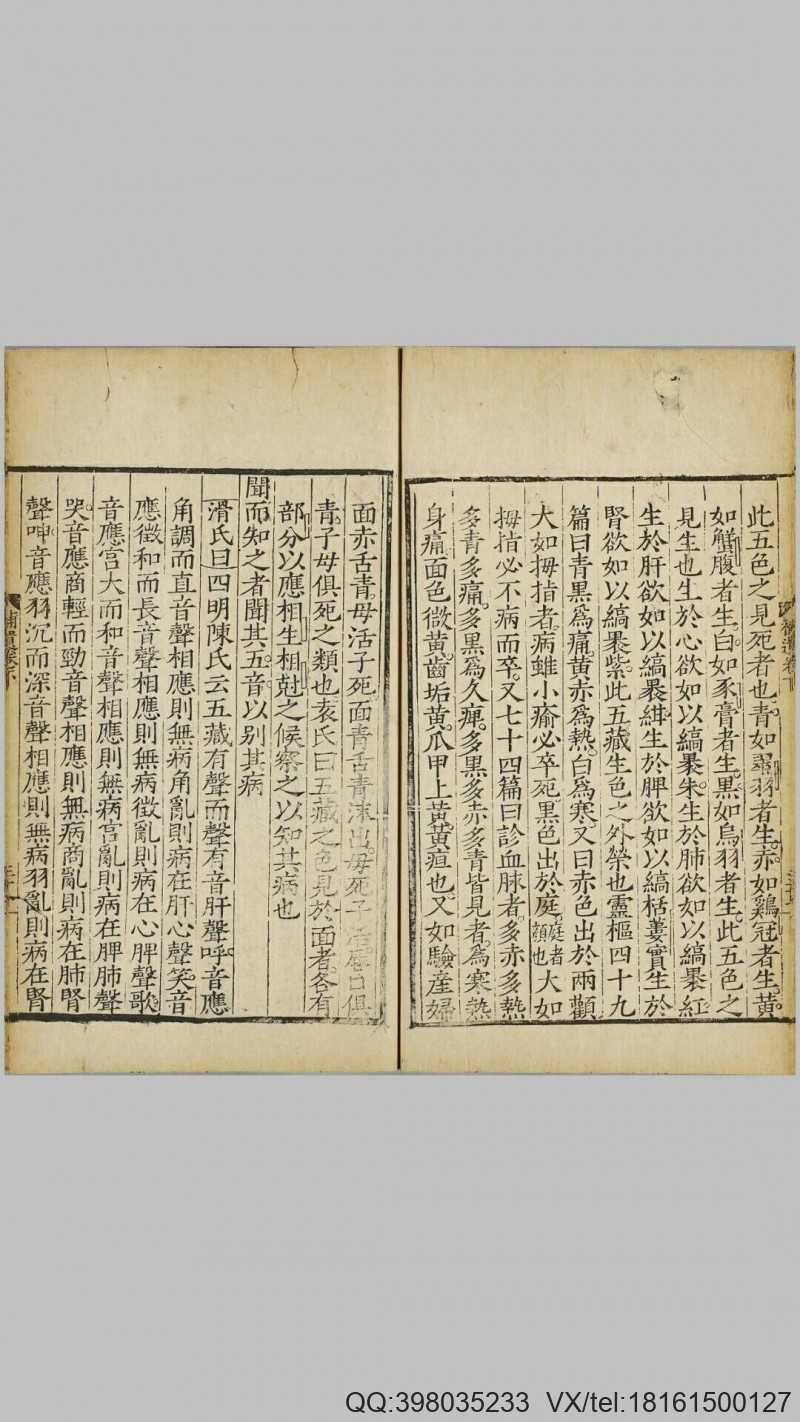 此五色之見死者也青如翠羽者生赤如鷄冠者生黃
如蟹腹者生白如豕膏者生黑如烏羽者生此五色之
見生也生於心欲如以縞裹朱生於肺欲如以縞裹紅
生於肝欲如以縞裹紺生於脾欲如以縞栝蔞實生於
腎欲如以縞裹紫此五藏生色之外榮也靈樞四十九
篇曰青黑爲痛黃赤爲熱白爲寒又曰赤色出於兩顴
大如拇指者病雖小瘉必卒死黑色出於庭庭者顏也大如
拇指必不病而卒又七十四篇曰診血脉者多赤多熱
多青多痛多黑爲久痺多黑多赤多青皆見者爲寒熱
身痛面色微黃齒垢黃瓜甲上黃黃疸也又如驗產婦
面赤舌青母活子死面青舌青沫出母死子活唇口俱
青子母俱死之類也袁氏曰五藏之色見於面者各有
部分以應相生相尅之候察之以知其病也
聞而知之者聞其五音以別其病
滑氏曰四明陳氏云五藏有聲而聲有音肝聲呼音應
角調而直音聲相應則無病角亂則病在肝心聲笑音
應徵和而長音聲相應則無病徵亂則病在心脾聲歌
音應宮大而和音聲相應則無病宮亂則病在脾肺聲
哭音應商輕而勁音聲相應則無病商亂則病在肺腎
聲呻音應羽沉而深音聲相應則無病羽亂則病在腎
QQ:398035233 VX/tel:18161500127